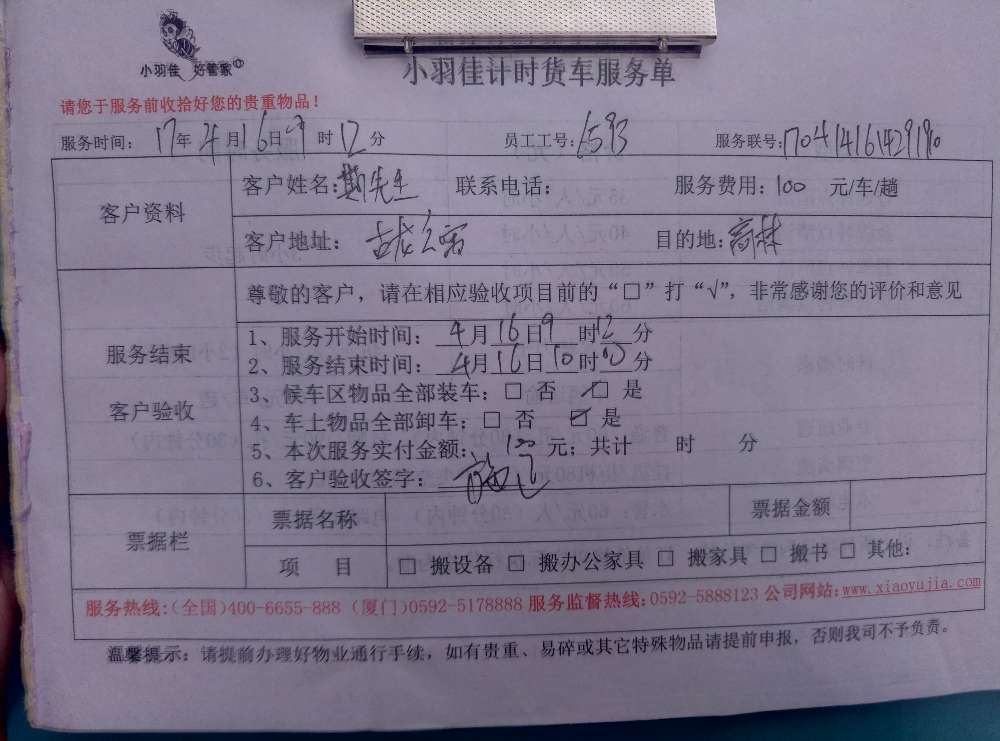 小羽佳 好管家
小羽佳计时货车服务单
请您于服务前收拾好您的贵重物品！
服务时间：17年4月16日9时12分 员工工号：6593 服务联号：170414161429190
客户资料
客户姓名： 先生 联系电话： 服务费用：100 元/车/趟
客户地址：古龙公寓 目的地：高林
服务结束
客户验收
尊敬的客户，请在相应验收项目前的“□”打“√”，非常感谢您的评价和意见
1、服务开始时间：4月16日9时12分
2、服务结束时间：4月16日10时10分
3、候车区物品全部装车：□ 否 ☑ 是
4、车上物品全部卸车：□ 否 ☑ 是
5、本次服务实付金额：100元；共计 时 分
6、客户验收签字：
票据栏
票据名称 票据金额
项 目 □ 搬设备 □ 搬办公家具 □ 搬家具 □ 搬书 □ 其他：
服务热线：(全国)400-6655-888 (厦门)0592-5178888 服务监督热线：0592-5888123 公司网站：www.xiaoyujia.com
温馨提示：请提前办理好物业通行手续，如有贵重、易碎或其它特殊物品请提前申报，否则我司不予负责。